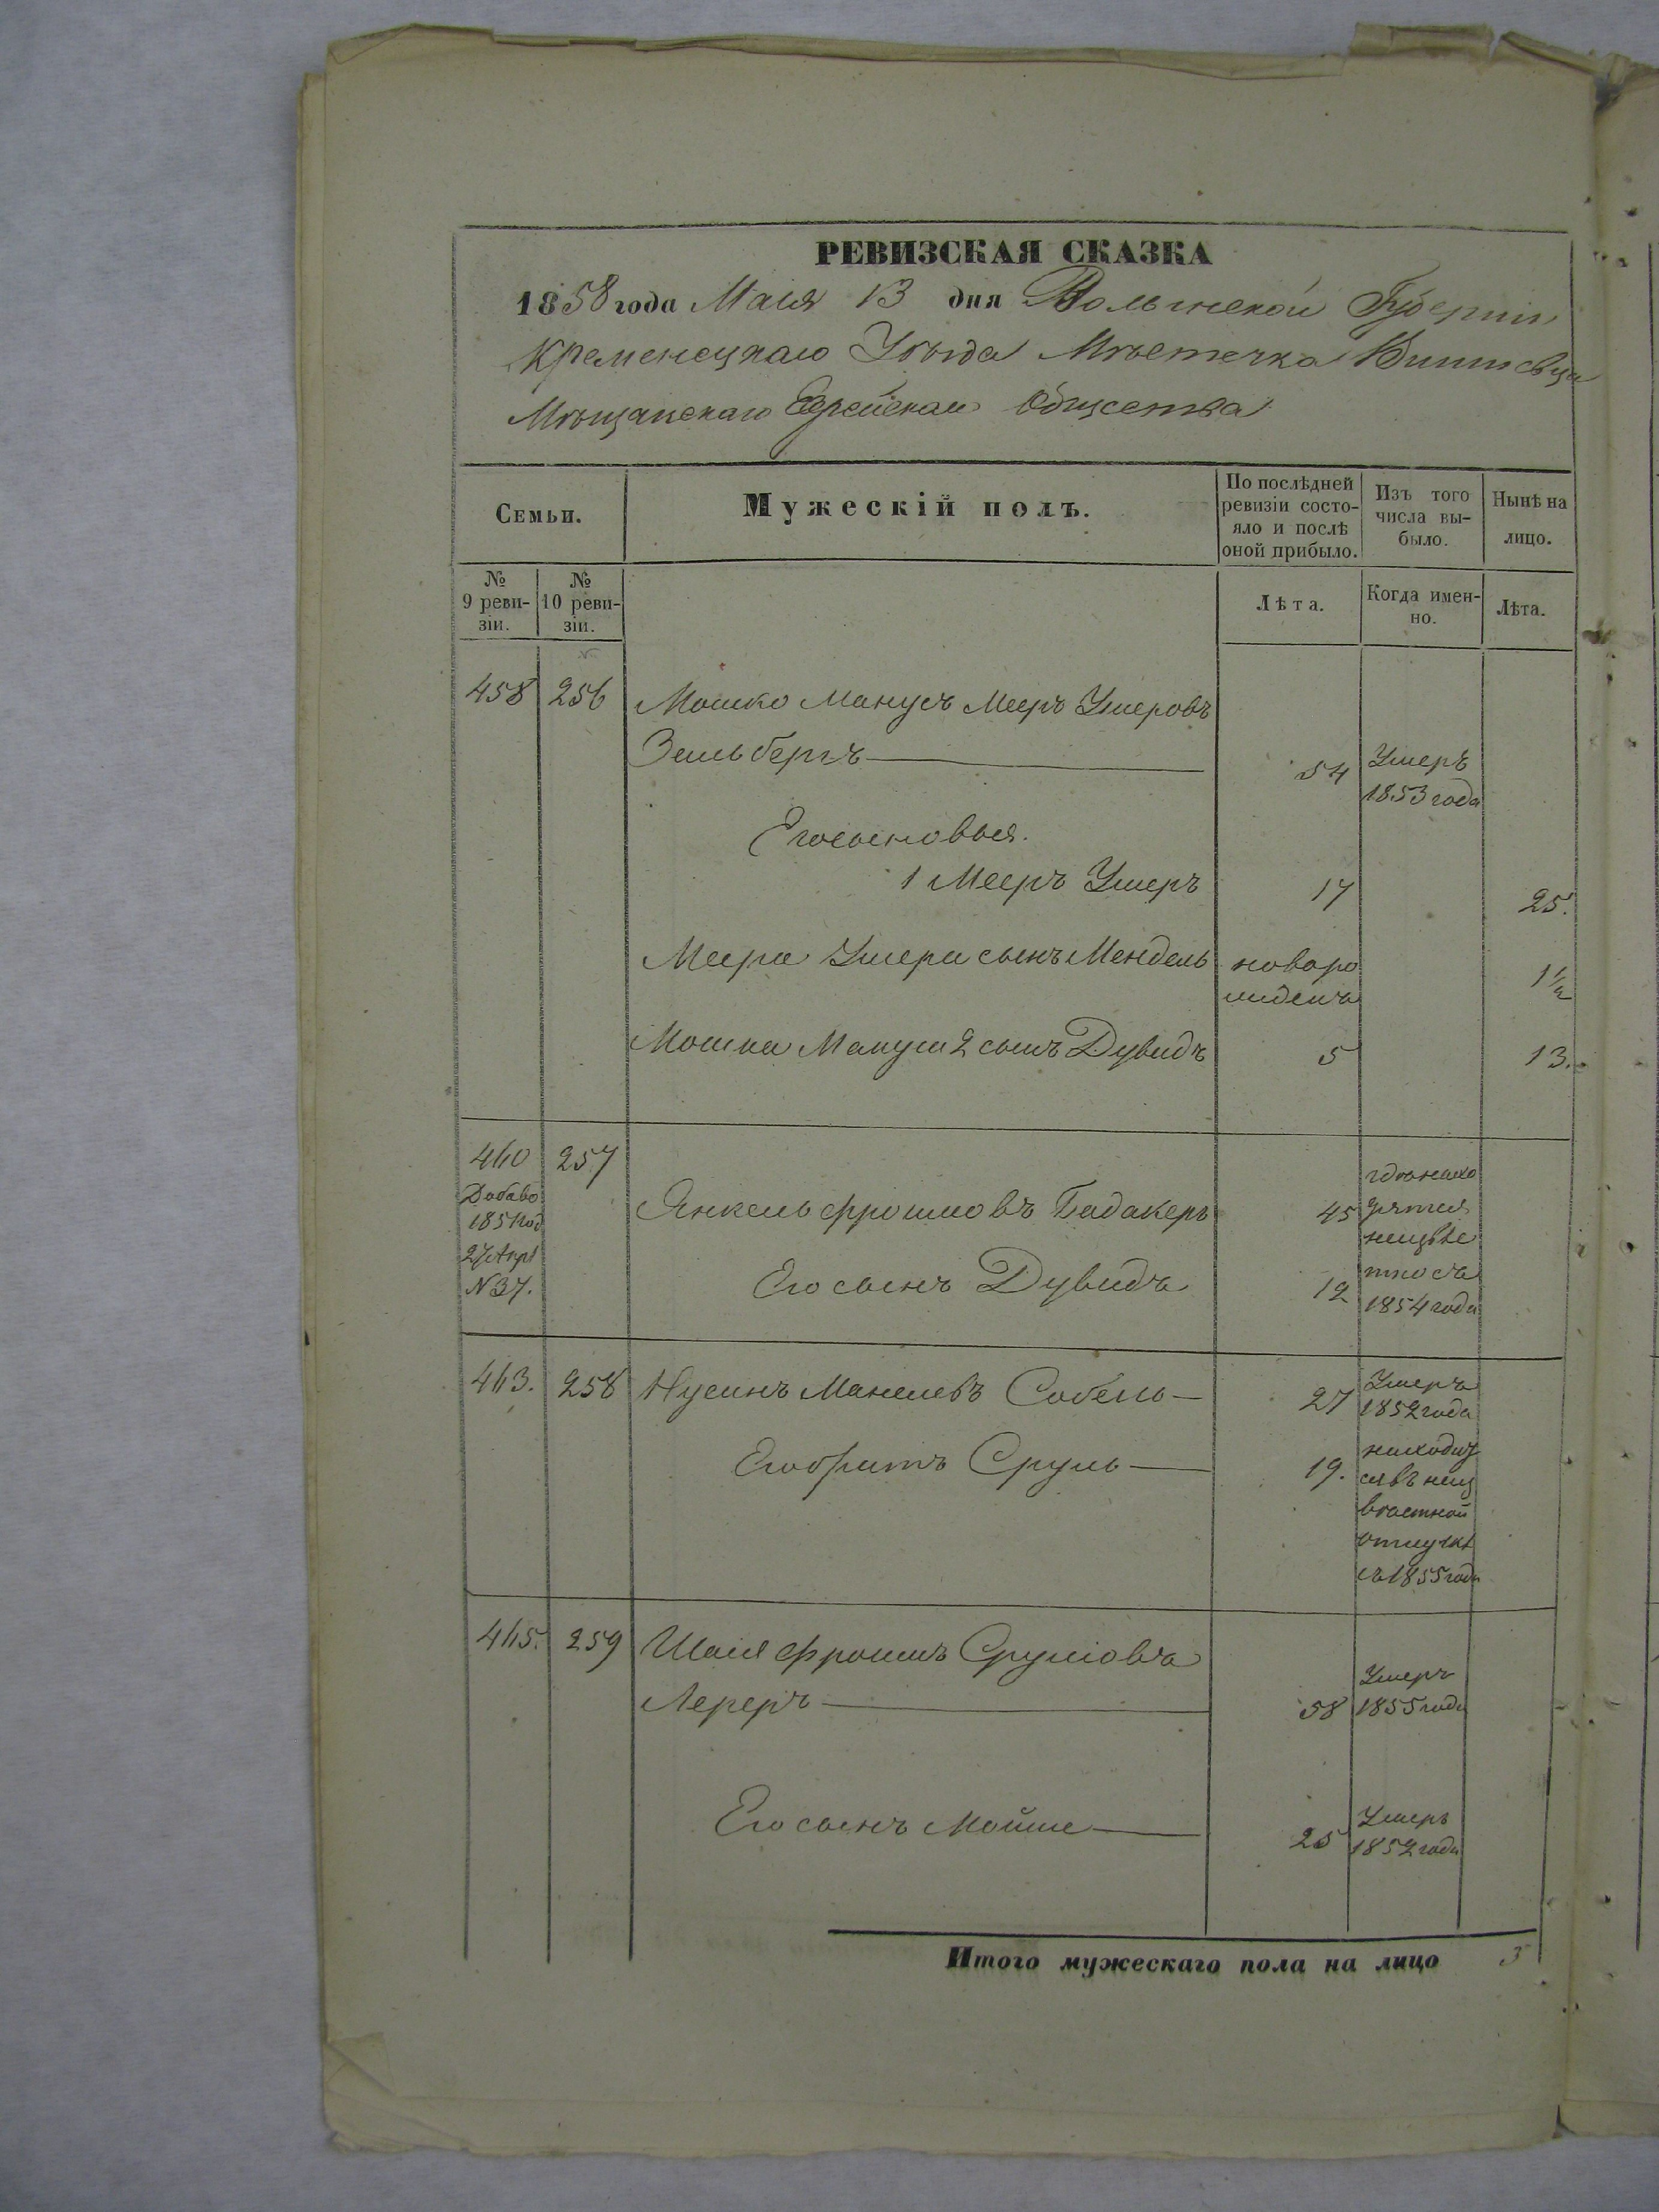 РЕВИЗСКАЯ СКАЗКА
1858 года Маія 13 дня Волынской Губерніи
Кременецкаго Уѣзда Мѣстечка Вишневца
Мѣщанскаго Еврейскаго Общества
Семьи.
Мужескій полъ.
По послѣдней ревизіи состо-
яло и послѣ
оной прибыло.
Изъ того
числа вы-
было.
Нынѣ на
лицо.
№
9 реви-
зіи.
№
10 реви-
зіи.
Лѣта.
Когда имен-
но.
Лѣта.
458 256 Мошко Манусъ Мееръ Умеровъ
Зельбергъ 54 Умеръ
1853 года
Его сыновья.
1 Мееръ Умеръ 17 25.
Меера Умера сынъ Мендель новоро
жденъ 1½
Мошка Мануса 2 сынъ Дувидъ 5 13.
460 257
Добаво
185 год
27 Апр
N 37.
Янкель Фроимовъ Бадакеръ 45
Его сынъ Дувидъ 12
гдѣ нахо
дятся
неизвѣс
тно съ
1854 года
463. 258 Нусинъ Манелевъ Собель 27 Умеръ
1852 года
Его братъ Сруль 19. находит
ся въ неиз
вѣстной
отлучкѣ
съ 1855 года
465. 259 Шаія Фроимъ Сруліовъ
Лереръ 58 Умеръ
1855 года
Его сынъ Мойше 25 Умеръ
1852 года
Итого мужескаго пола на лицо 3